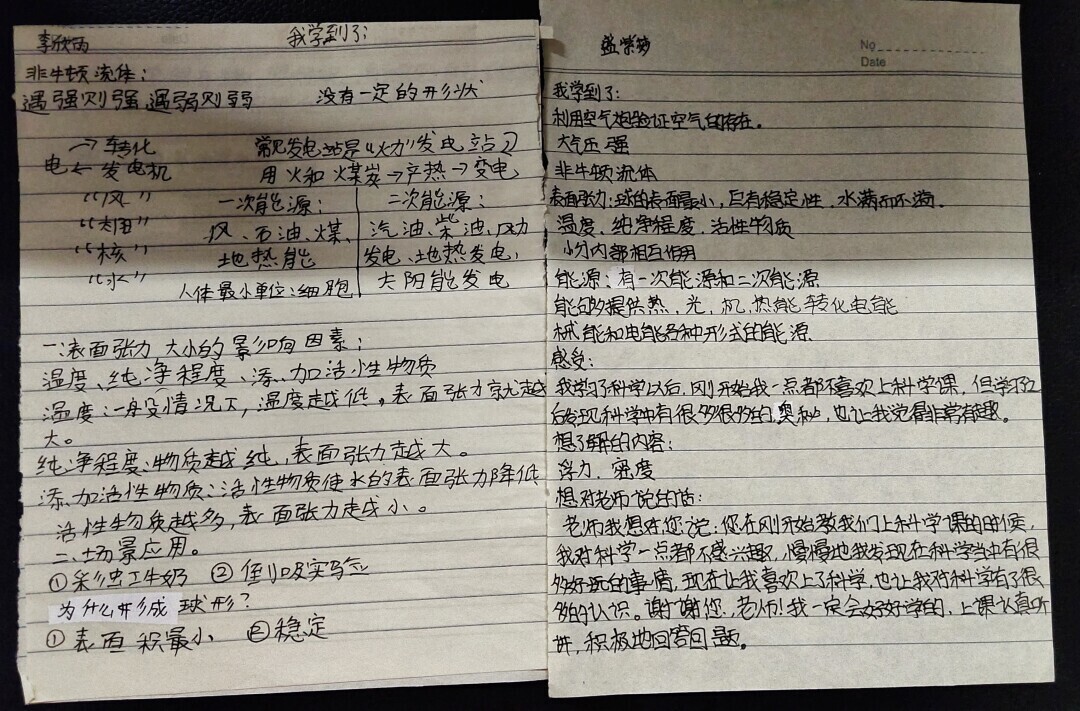 我学到了:
李欣
非牛顿流体:
遇强则强 遇弱则弱 没有一定的形状
→转化 常见发电站是“火力”发电站
电←发电机 用火和煤炭→产热→变电
“风” 一次能源: 二次能源:
“太阳” 风、石油、煤、 汽油、柴油、风力
“核” 地热能 发电、地热发电,
“水” 人体最小单位:细胞 太阳能发电
一:表面张力大小的影响因素:
温度、纯净程度、添加活性物质
温度:一般情况下,温度越低,表面张力就越
大。
纯净程度:物质越纯,表面张力越大。
添加活性物质:活性物质使水的表面张力降低
活性物质越多,表面张力越小。
二、场景应用。
①彩虹牛奶 ②倒吸实验
为什么形成球形?
①表面积最小 ②稳定
No
Date
我学到了:
利用空气炮验证空气的存在。
大气压强
非牛顿流体
表面张力:球的表面最小,且有稳定性,水满而不溢。
温度、纯净程度、活性物质
分内部相互作用
能源:有一次能源和二次能源
能够提供热,光,机,热能转化电能
械能和电能各种形式的能源
感受:
我学习了科学以后,刚开始我一点都不喜欢上科学课,但学习之
后发现科学中有很多很多的奥秘,也让我觉得非常有趣。
想了解的内容:
浮力、密度
想对老师说的话:
老师我想对您说:您在刚开始教我们上科学课的时候,
我对科学一点都不感兴趣,慢慢地我发现在科学当中有很
多好玩的事情,现在让我喜欢上了科学,也让我对科学有了很
多的认识。谢谢你,老师!我一定会好好学的,上课认真听
讲,积极地回答问题。